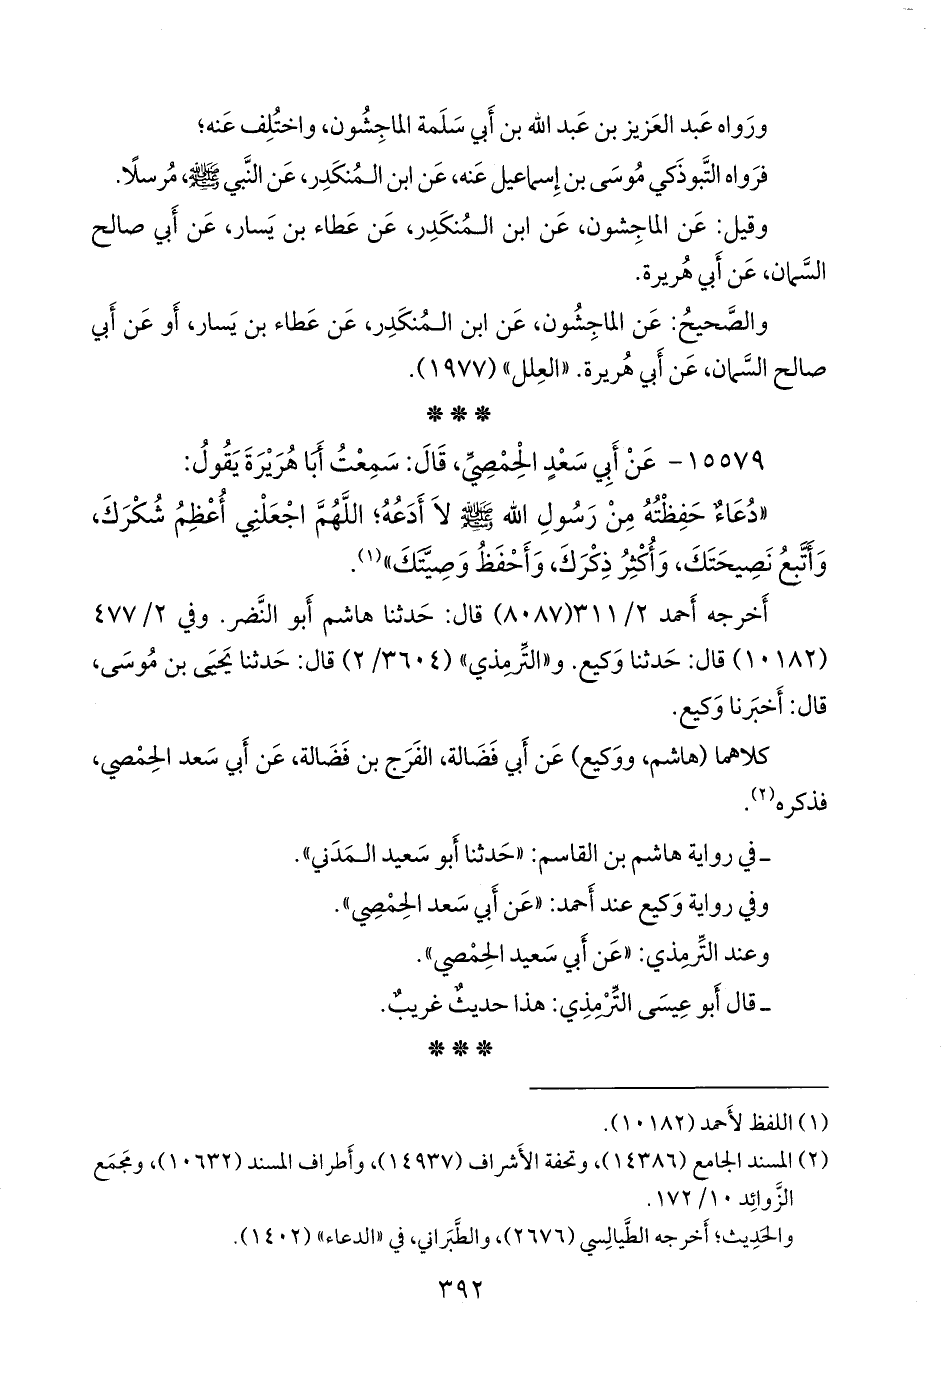 ورَواه عَبد العَزيز بن عَبد الله بن أَبي سَلَمة الماجِشُون، واختُلِف عَنه؛
فرَواه التَّبوذَكي مُوسَى بن إِسماعيل عَنه، عَن ابن الـمُنكَدِر، عَن النَّبي ﷺ، مُرسلًا.
وقيل: عَن الماجِشون، عَن ابن الـمُنكَدِر، عَن عَطاء بن يَسار، عَن أَبي صالح
السَّمان، عَن أَبي هُريرة.
والصَّحيحُ: عَن الماجِشُون، عَن ابن الـمُنكَدِر، عَن عَطاء بن يَسار، أَو عَن أَبي
صالح السَّمان، عَن أَبي هُريرة. «العِلل» (١٩٧٧).
***
١٥٥٧٩- عَنْ أَبِي سَعْدٍ الْحِمْصِيِّ، قَالَ: سَمِعْتُ أَبَا هُرَيْرَةَ يَقُولُ:
«دُعَاءٌ حَفِظْتُهُ مِنْ رَسُولِ الله ﷺ لاَ أَدَعُهُ؛ اللَّهُمَّ اجْعَلْنِي أُعْظِمُ شُكْرَكَ،
وَأَتَّبِعُ نَصِيحَتَكَ، وَأُكْثِرُ ذِكْرَكَ، وَأَحْفَظُ وَصِيَّتَكَ»(١).
أَخرجه أَحمد ٢/ ٣١١(٨٠٨٧) قال: حَدثنا هاشم أَبو النَّضر. وفي ٢/ ٤٧٧
(١٠١٨٢) قال: حَدثنا وَكيع. و«التِّرمِذي» (٣٦٠٤/ ٢) قال: حَدثنا يَحيَى بن مُوسَى،
قال: أَخبَرنا وَكيع.
كلاهما (هاشم، ووَكيع) عَن أَبي فَضَالة، الفَرَج بن فَضَالة، عَن أَبي سَعد الحِمْصي،
فذكره(٢).
ـ في رواية هاشم بن القاسم: «حَدثنا أَبو سَعيد الـمَدَني».
وفي رواية وَكيع عند أَحمد: «عَن أَبي سَعد الحِمْصِي».
وعند التِّرمِذي: «عَن أَبي سَعيد الحِمْصي».
ـ قال أَبو عِيسَى التِّرْمِذِي: هذا حديثٌ غريبٌ.
***
(١) اللفظ لأَحمد (١٠١٨٢).
(٢) المسند الجامع (١٤٣٨٦)، وتحفة الأَشراف (١٤٩٣٧)، وأَطراف المسند (١٠٦٣٢)، ومَجمَع
الزَّوائِد ١٠/ ١٧٢.
والحَدِيث؛ أَخرجه الطَّيالِسي (٢٦٧٦)، والطَّبَراني، في «الدعاء» (١٤٠٢).
٣٩٢